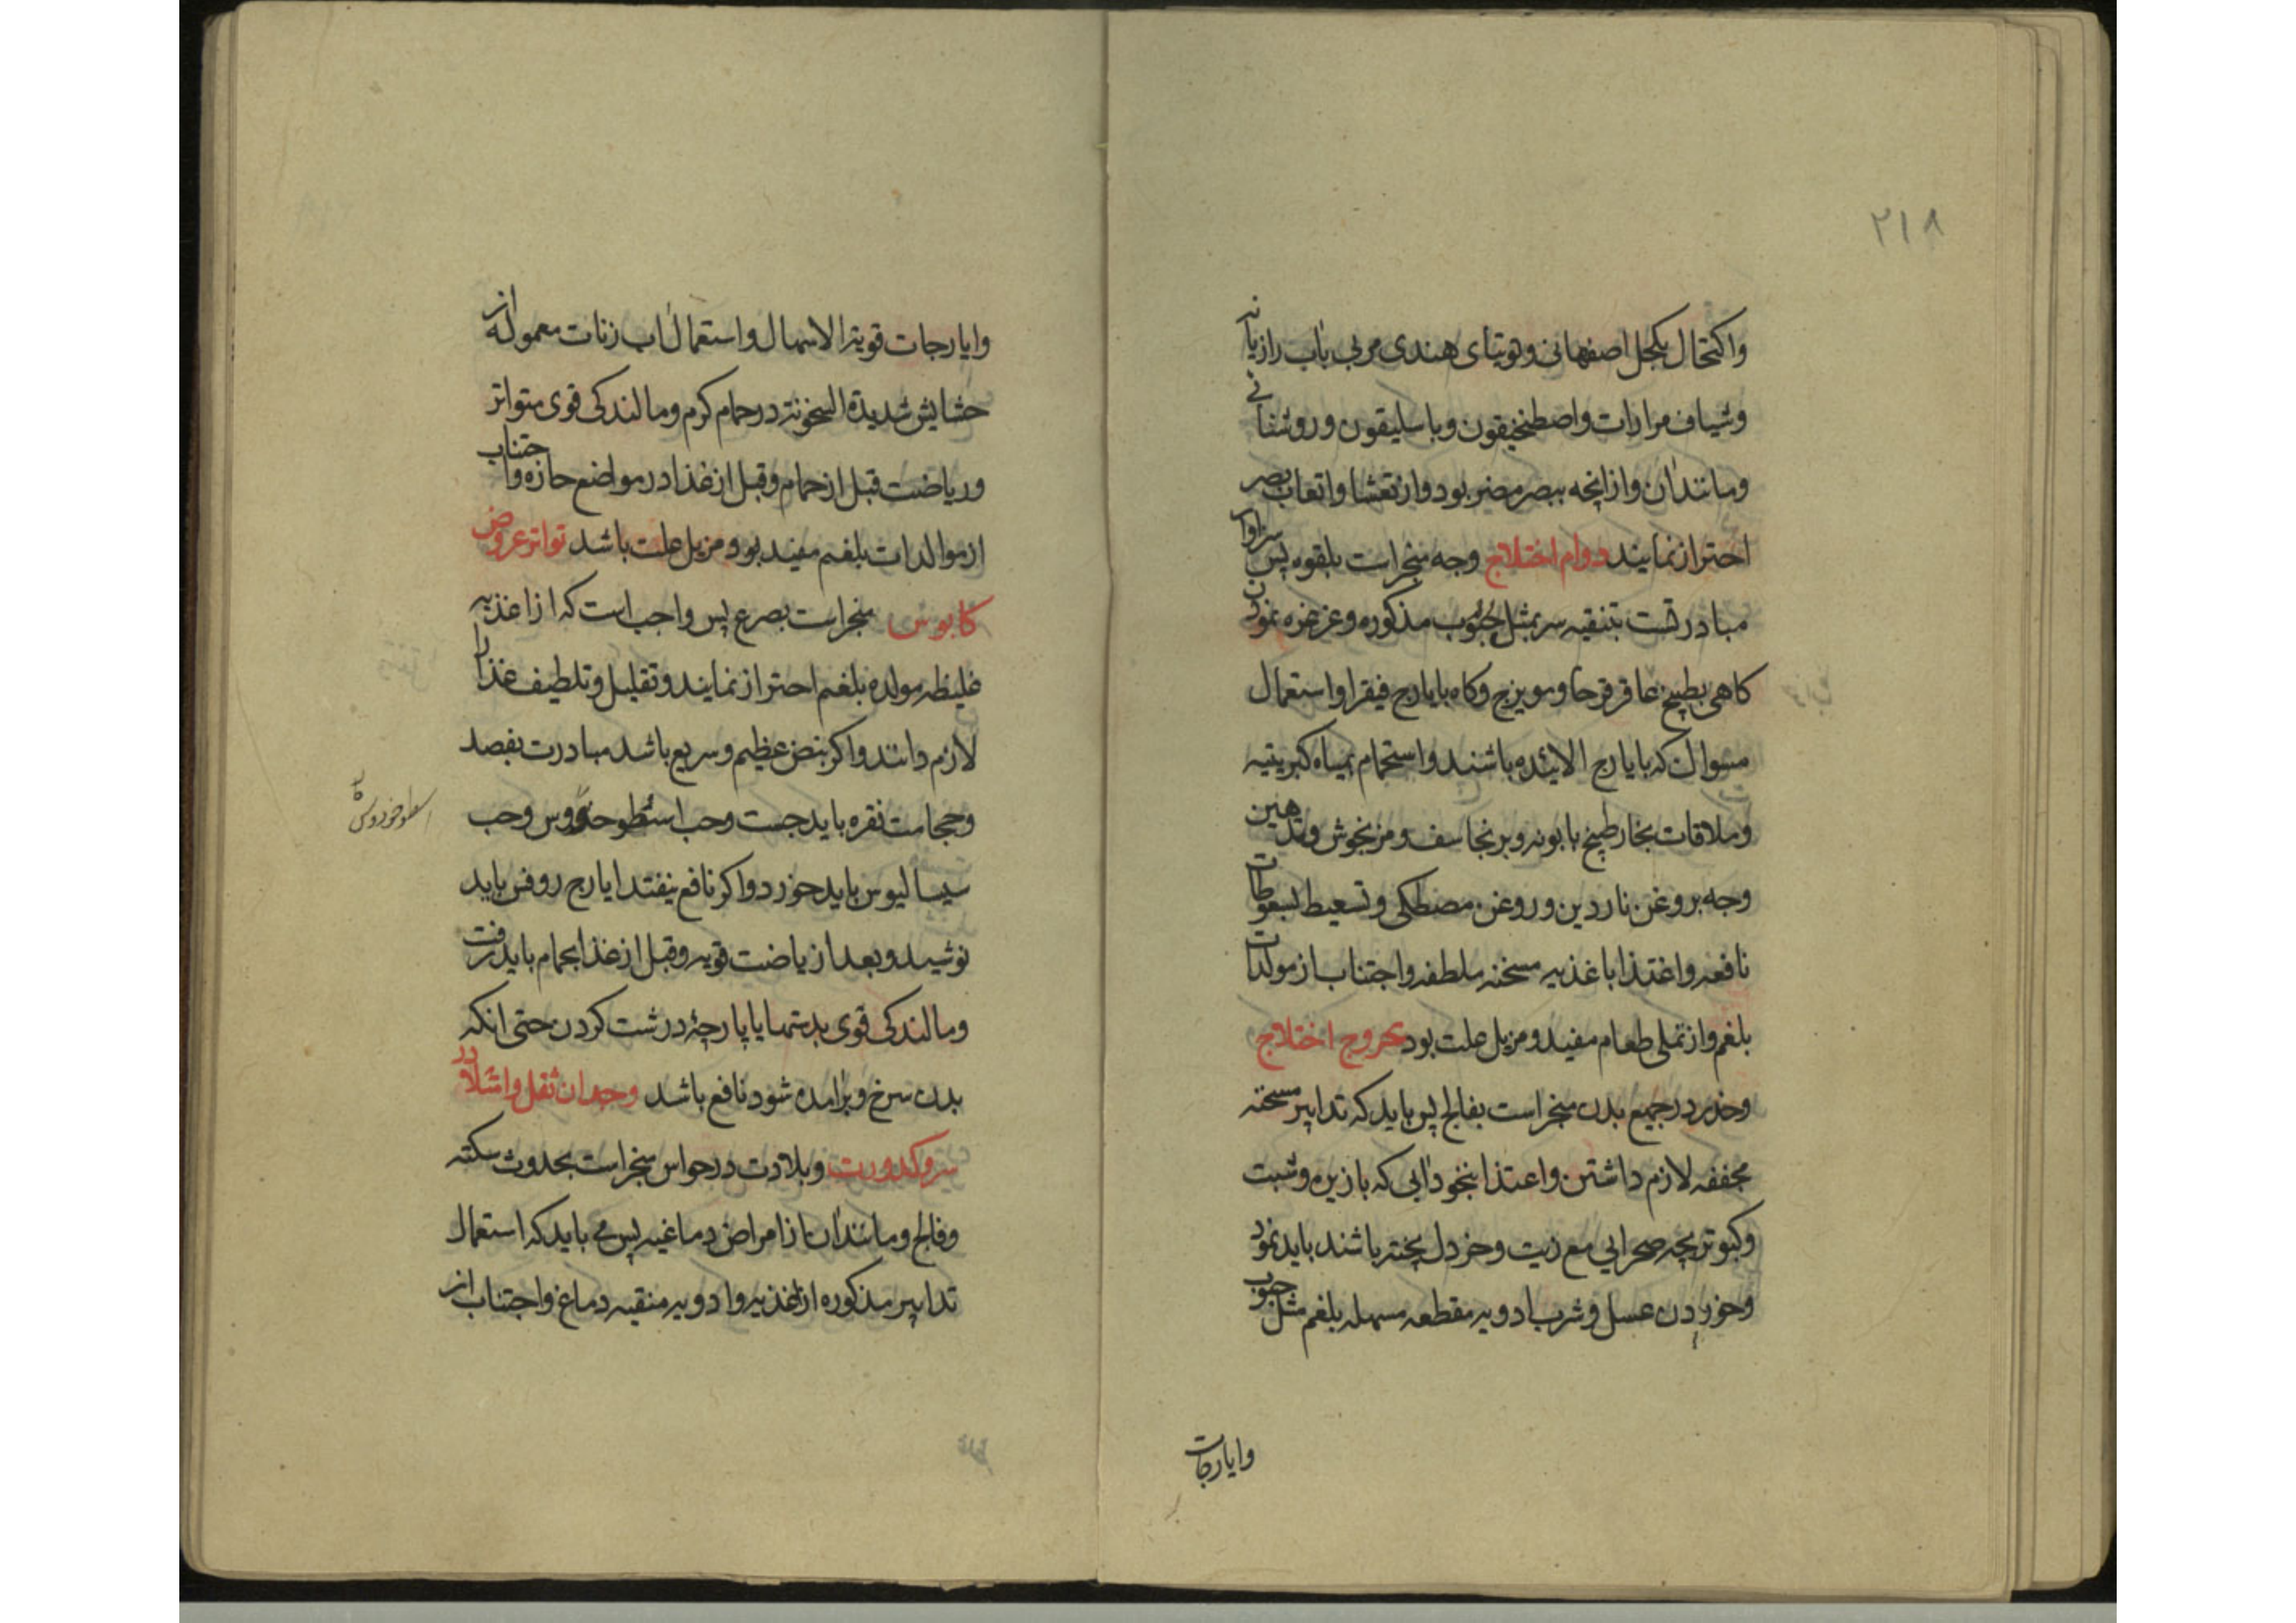 ٢١٨
واکتحال بکحل اصفهانی وتوتیای هندی مربی باب رازیانه
وشیاف مرارات واصطخیقون وباسلیقون وروشنائی
ومانند آن وازانچه ببصر مضر بود وازتعشا واتعاب بصر
احتراز نمایند دوام اختلاج وجه منجراست بلقوه پس سزاوار
مبادرتست بتنقیه سر بمثل حبوب مذکوره وغرغره نمودن
کاهی بطبیخ عاقرقرحا ومویزج وکاه بایارج فیقرا واستعمال
مسوال که بایارج الائیده باشند واستحمام بمیاه کبریتیه
وملاقات بخار طبیخ بابونه وبرنجاسف ومرزنجوش وتدهین
وجه بروغن ناردین وروغن مصطکی وتسعیط بسعوطات
نافعه واغتذا باغذیه مسخنه ملطفه واجتناب ازمولدات
بلغم وازتملی طعام مفید ومزیل علت بود بحروج اختلاج
وخدر درجمیع بدن منجراست بفالج پس باید که تدابیر مسخنه
مجففه لازم داشتن واعتذا بنخودابی که بازیره وشبت
وکبوتر بچه صحرایی مع زیت وخردل پخته باشند باید نمود
وخوردن عسل وشرب ادویه مقطعه مسهله بلغم مثل حبوب
وایارجات
وایارجات قویة الاسهال واستعمال اب زنات معموله از
حشایش شدیدة السخونة درحمام کرم ومالندکی قوی متواتر
وریاضت قبل ازحمام وقبل ازغذا درمواضع حاره واجتناب
ازموالدات بلغم مفید بود ومزیل علت باشد تواتر عروض
کابوس منجراست بصرع پس واجب است که ازاغذیه
غلیظه مولده بلغم احتراز نمایند وتقلیل وتلطیف غذا را
لازم دانند واکر نبض عظیم وسریع باشد مبادرت بفصد
وحجامت نقره باید جست وحب اسطوحدوس وحب
اسطوخودوس
سیسالیوس باید خورد واکر نافع نیفتد ایارج روفس باید
نوشید وبعد ازریاضت قویه وقبل ازغذا بحمام باید رفت
ومالندکی قوی بدستها یا پارچۀ درشت کردن حتی انکه
بدن سرخ وبرآمده شود نافع باشد وجدان ثقل وامتلا در
سر وکدورت وبلادت درحواس منجراست بحدوث سکته
وفالج ومانند آن ازامراض دماغیه پس می باید که استعمال
تدابیر مذکوره ازاغذیه وادویه منقیه دماغ واجتناب از